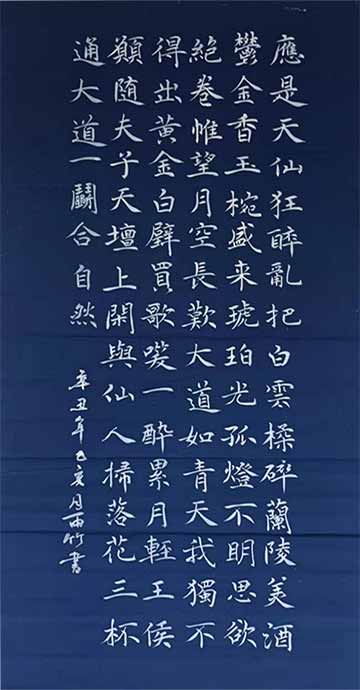 應是天仙狂醉亂把白雲揉碎蘭陵美酒
鬱金香玉椀盛来琥珀光孤燈不明思欲
絕卷帷望月空長歎大道如青天我獨不
得出黃金白璧買歌笑一醉累月輕王侯
願隨夫子天壇上閑與仙人掃落花三杯
通大道一鬭合自然
辛丑年乙亥月雨竹書